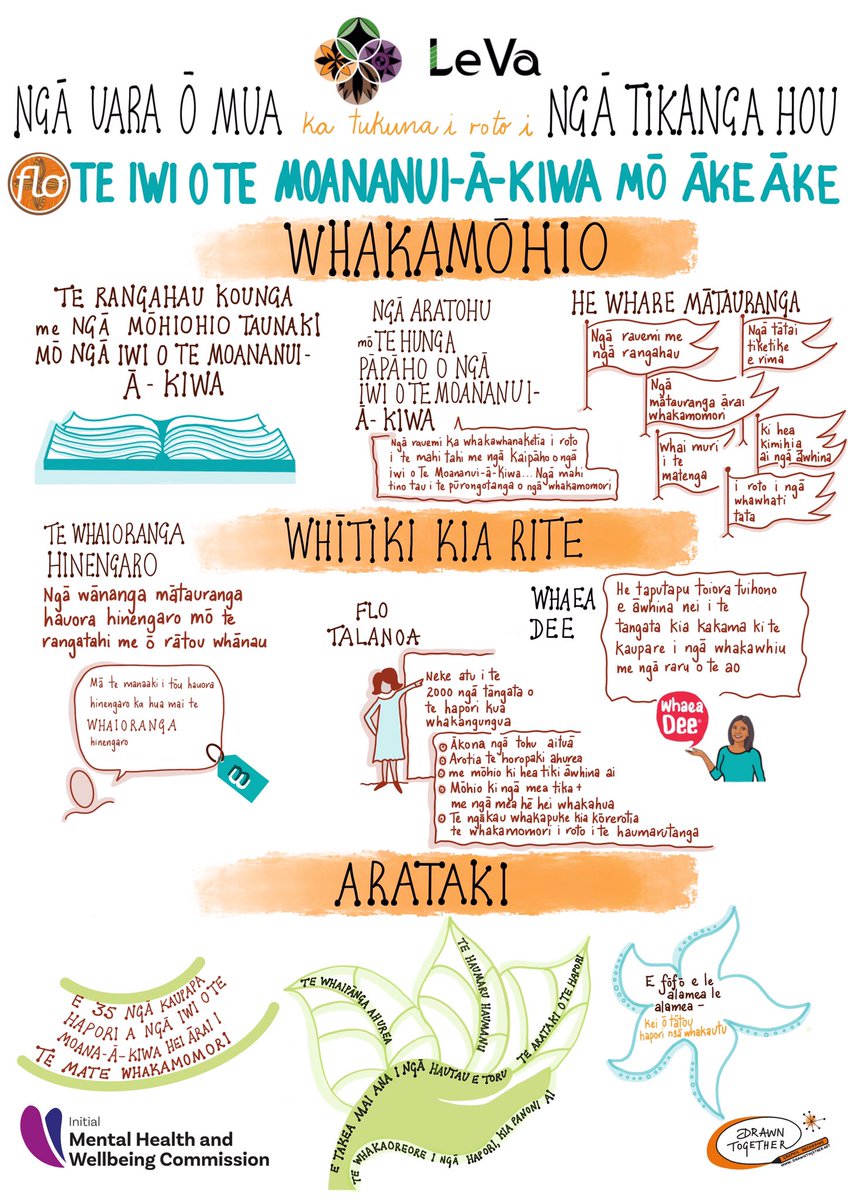 LeVa
NGĀ UARA Ō MUA ka tukuna i roto i NGĀ TIKANGA HOU
flo TE IWI O TE MOANANUI-Ā-KIWA MŌ ĀKE ĀKE
WHAKAMŌHIO
TE RANGAHAU KOUNGA
me NGĀ MŌHIOHIO TAUNAKI
MŌ NGĀ IWI O TE MOANANUI-
Ā - KIWA
NGĀ ARATOHU
mō TE HUNGA
PĀPĀHO O NGĀ
IWI O TE MOANANUI-
Ā - KIWA
Ngā rauemi ka whakawhanaketia i roto
i te mahi tahi me ngā Kaipāho o ngā
iwi o Te Moananui-ā-Kiwa... Ngā mahi
tino tau i te pūrongotanga o ngā whakamomori
HE WHARE MĀTAURANGA
Ngā rauemi me
ngā rangahau
Ngā tātai
tiketike
e rima
Ngā
mātauranga ārai
whakamomori
ki hea
kimihia
ai ngā āwhina
Whai muri
i te
matenga
i roto i ngā
whawhati
tata
WHĪTIKI KIA RITE
TE WHAIORANGA
HINENGARO
Ngā wānanga mātauranga
hauora hinengaro mō te
rangatahi me ō rātou whānau
Mā te manaaki i tōu hauora
hinengaro ka hua mai te
WHAIORANGA
hinengaro
FLO
TALANOA
Neke atu i te
2000 ngā tāngata o
te hapori kua
whakangungua
Ākona ngā tohu aituā
Arotia te horopaki ahurea
me mōhio ki hea tiki āwhina ai
Mōhio ki ngā mea tika +
me ngā mea hē hei whakahua
Te ngākau whakapuke kia kōrerotia
te whakamomori i roto i te haumarutanga
WHAEA
DEE
He taputapu toiora tuihono
e āwhina nei i te
tangata kia kakama ki te
kaupare i ngā whakawhiu
me ngā raru o te ao
Whaea
Dee
ARATAKI
E 35 NGĀ KAUPAPA
HAPORI A NGĀ IWI O TE
MOANA-Ā-KIWA HEI ĀRAI I
TE MATE WHAKAMOMORI
TE WHAIPĀNGA AHUREA
TE HAUMARU HAUMANU
TE ARATAKI O TE HAPORI
E TAKEA MAI ANA I NGĀ HAUTAU E TORU
TE WHAKAOREORE I NGĀ HAPORI, KIA PANONI AI
E fōfō e le
alamea le
alamea -
Kei ō tātou
hapori ngā whakautu
Initial
Mental Health and
Wellbeing Commission
DRAWN
TOGETHER